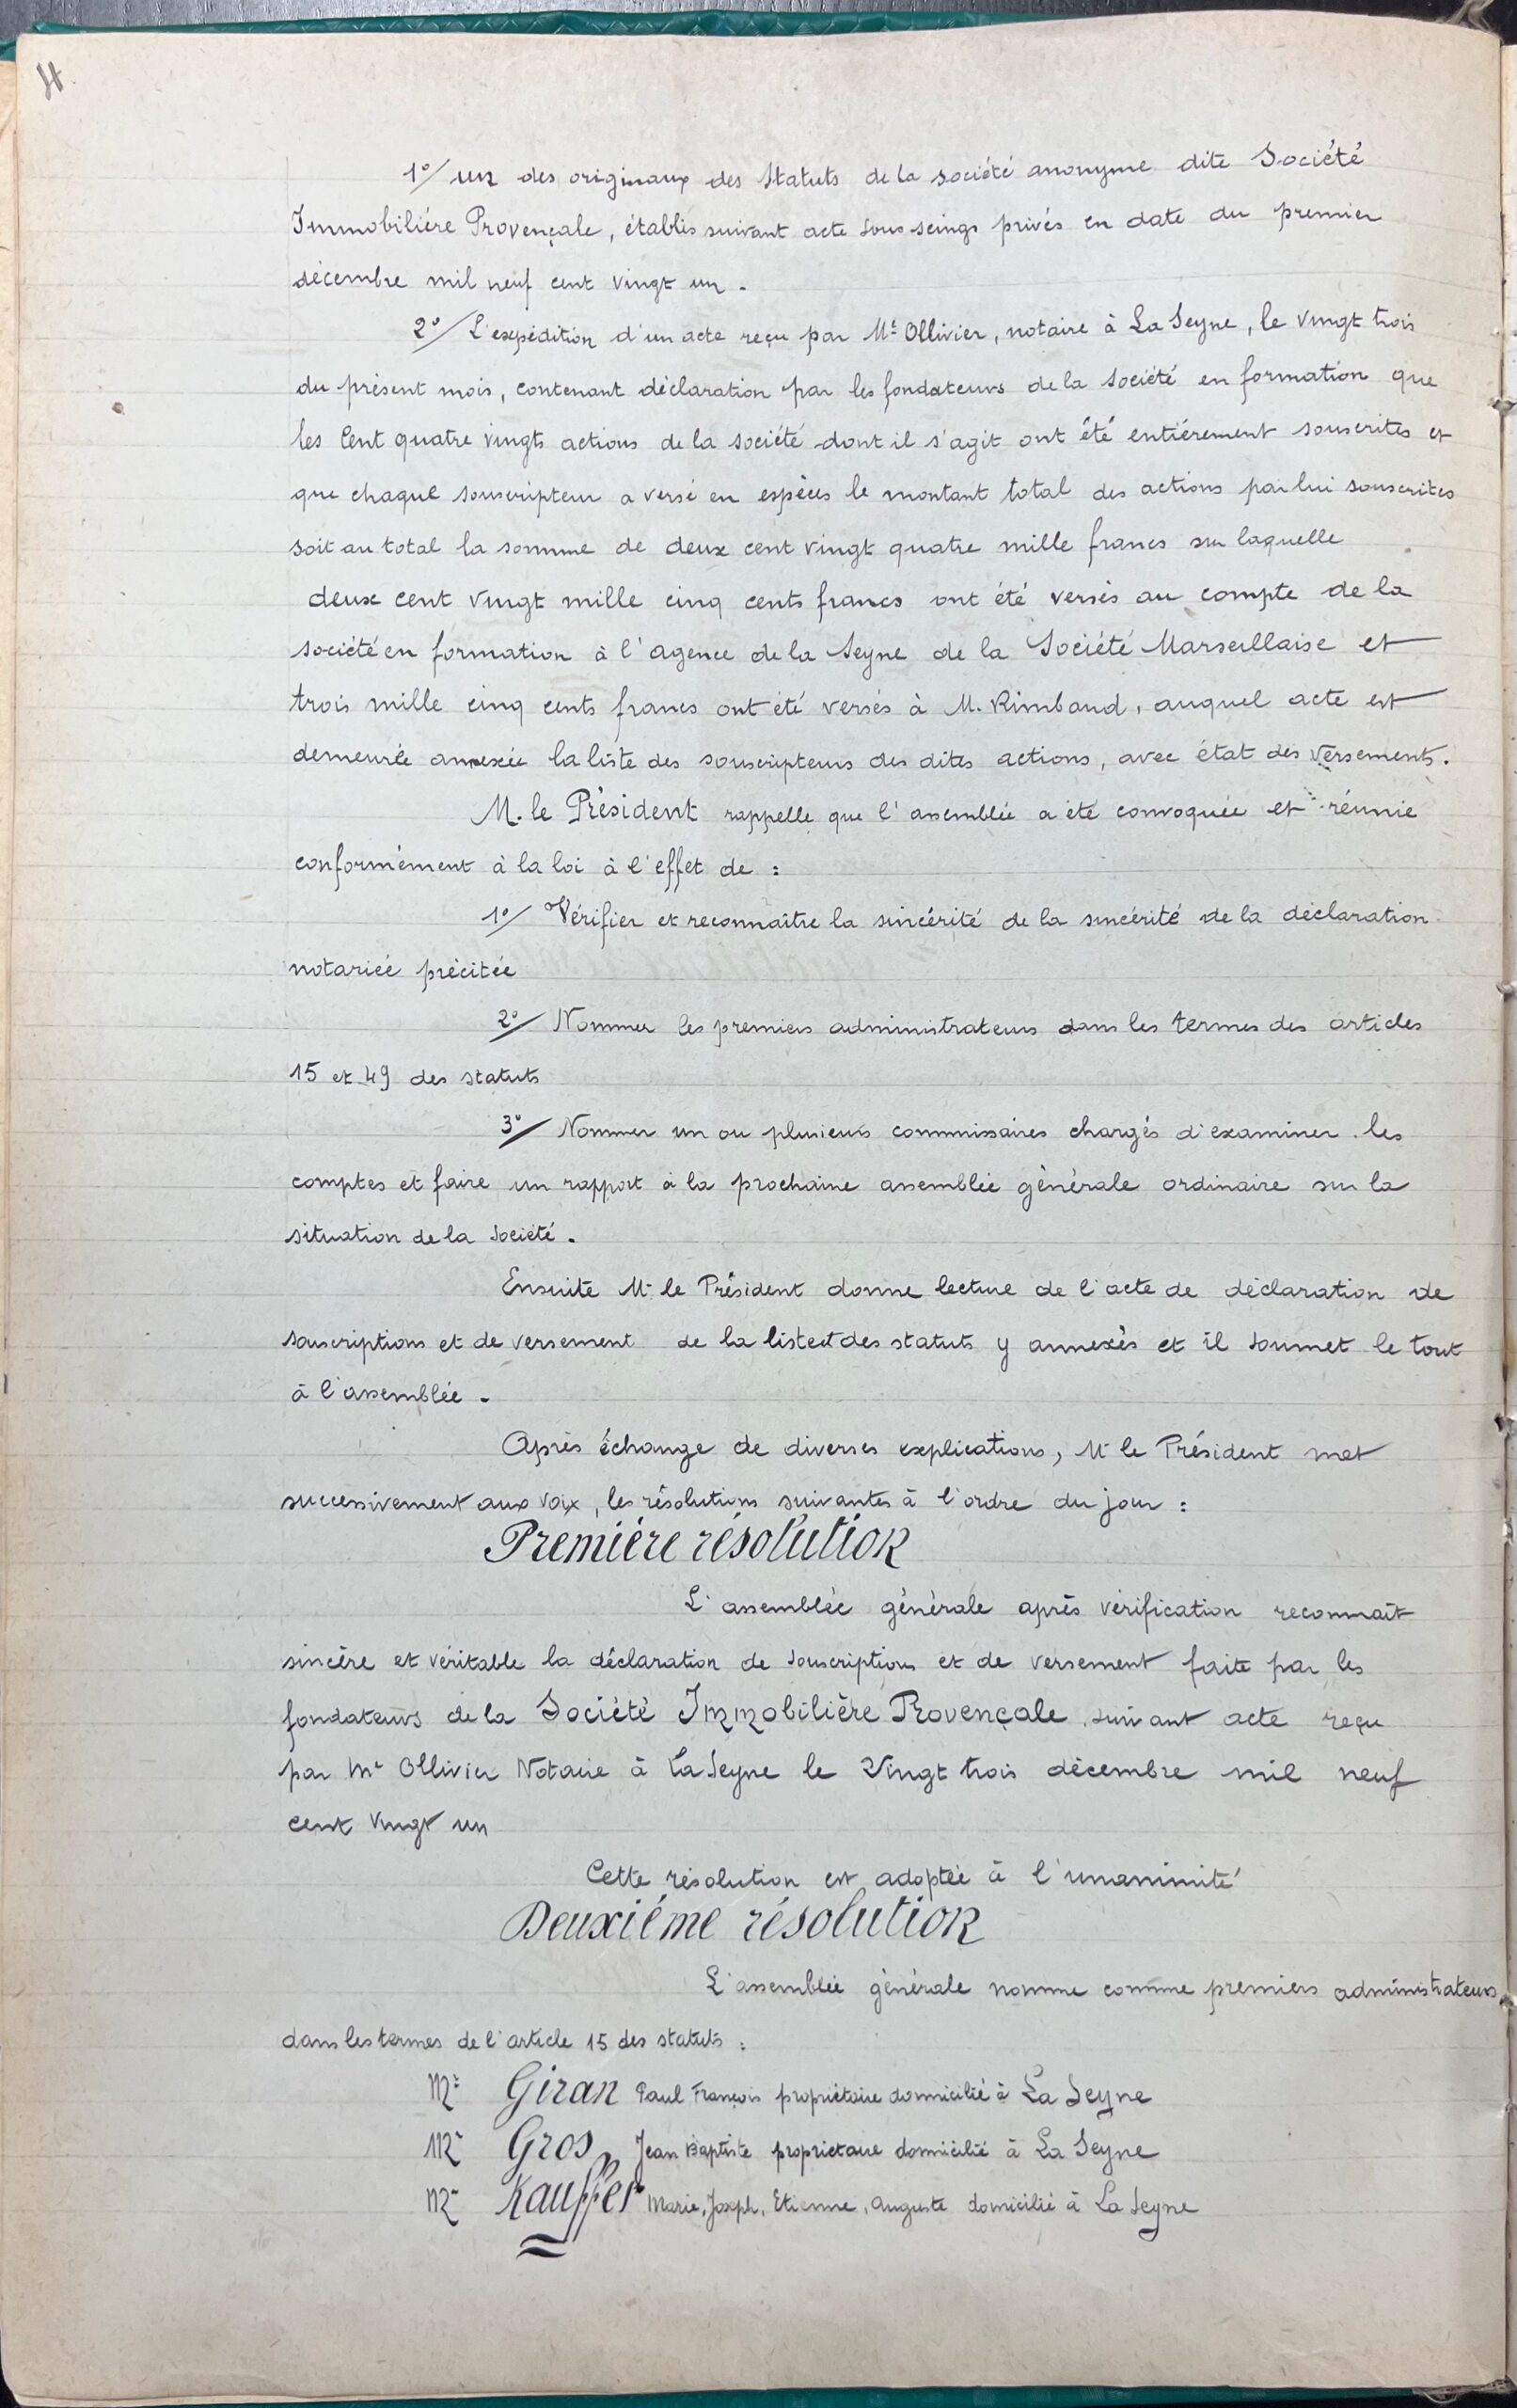 1°/ un des originaux des Statuts de la société anonyme dite Société
Immobilière Provençale, établis suivant acte sous seings privés en date du premier
décembre mil neuf cent vingt un.
2°/ L'expédition d'un acte reçu par Me Ollivier, notaire à La Seyne, le vingt trois
du présent mois, contenant déclaration par les fondateurs de la société en formation que
les Cent quatre vingts actions de la société dont il s'agit ont été entiérement souscrites et
que chaque souscripteur a versé en espèces le montant total des actions par lui souscrites
soit au total la somme de deux cent vingt quatre mille francs sur laquelle
deux cent vingt mille cinq cents francs ont été versés au compte de la
société en formation à l'agence de la Seyne de la Société Marseillaise et
trois mille cinq cents francs ont été versés à M. Rimbaud, auquel acte est
demeurée annexée la liste des souscripteurs des dites actions, avec état des versements.
M. le Président rappelle que l'assemblée a été convoquée et réunie
conformément à la loi à l'effet de :
1°/ Vérifier et reconnaître la sincérité de la sincérité de la déclaration
notariée précitée
2°/ Nommer les premiers administrateurs dans les termes des articles
15 et 49 des statuts
3°/ Nommer un ou plusieurs commissaires chargés d'examiner les
comptes et faire un rapport à la prochaine assemblée générale ordinaire sur la
situation de la Société.
Ensuite Mr le Président donne lecture de l'acte de déclaration de
souscriptions et de versement de la liste et des statuts y annexés et il soumet le tout
à l'assemblée.
Après échange de diverses explications, Mr le Président met
successivement aux voix, les résolutions suivantes à l'ordre du jour :
Première résolution
L'assemblée générale après vérification reconnaît
sincère et véritable la déclaration de souscriptions et de versement faite par les
fondateurs de la Société Immobilière Provençale, suivant acte reçu
par Me Ollivier Notaire à La Seyne le Vingt trois décembre mil neuf
cent vingt un
Cette résolution est adoptée à l'unanimité
Deuxiéme résolution
L'assemblée générale nomme comme premiers administrateurs,
dans les termes de l'article 15 des statuts :
Mr Giran Paul François propriétaire domicilié à La Seyne
Mr Gros Jean Baptiste propriétaire domicilié à La Seyne
Mr Kauffer Marie, Joseph, Etienne, Auguste domicilié à La Seyne